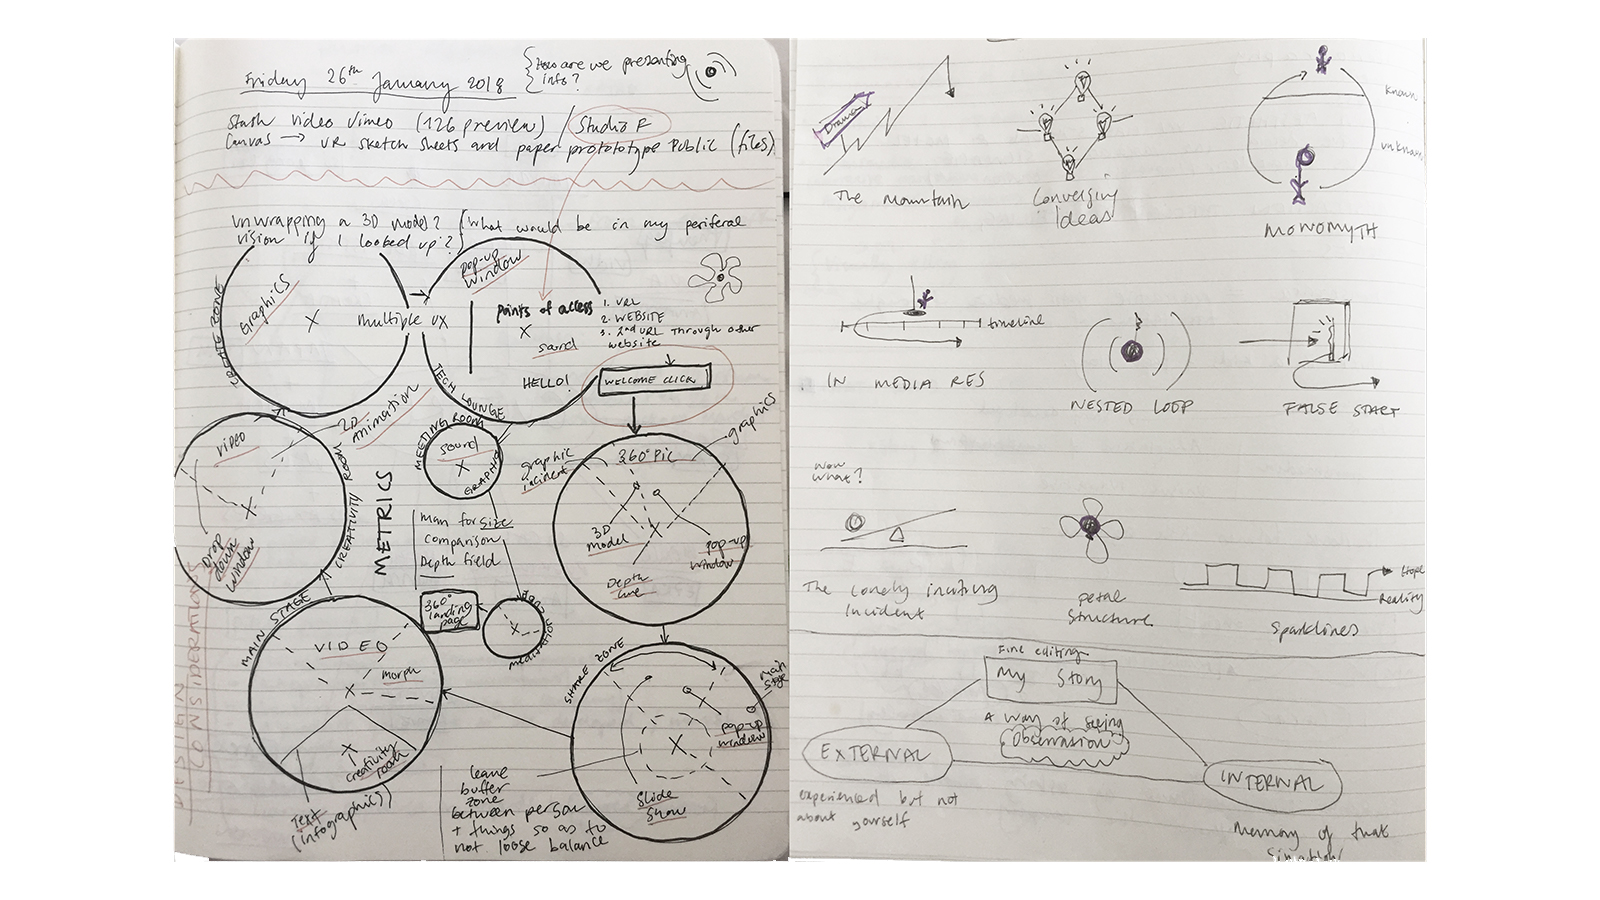 Friday 26th January 2018
How are we presenting
info?
Stash video vimeo (126 preview) / Studio F
Canvas → VR sketch sheets and paper protototype Public (files)
unwrapping a 3D model? What would be in my periferal
vision if I looked up?
CREATE ZONE
Graphics
X
multiple UX
pop-up
window
Points of access
X
sound
1. URL
2. WEBSITE
3. 2nd URL through other
website
HELLO!
WELCOME CLICK
TECH LOUNGE
2D
animation
VIDEO
X
Drop
down
window
CREATIVITY ROOM
METRICS
MEETING ROOM
sound
X
GRAPHIC
graphic
incident
graphics
360° Pic
X
3D
model
pop-up
window
Depth
Man for size
comparison
Depth field
360°
landing
page
X
meditation
MAIN STAGE
VIDEO
morph
X
X
creativity
room
Text
(infographics)
SHARE ZONE
main
stage
pop-up
window
X
Slide
Show
leave
buffer
zone
between person
+ things so as to
not loose balance
DESIGN
CONSIDERATIONS
Drama
The mountain
Converging
Ideas
known
unknown
MONOMYTH
timeline
IN MEDIA RES
NESTED LOOP
FALSE START
Now
what?
The lonely inciting
Incident
petal
structure
Hope
Reality
Sparklines
Fine editing
My Story
A way of seeing
Observation
EXTERNAL
INTERNAL
experienced but not
about yourself
Memory of that